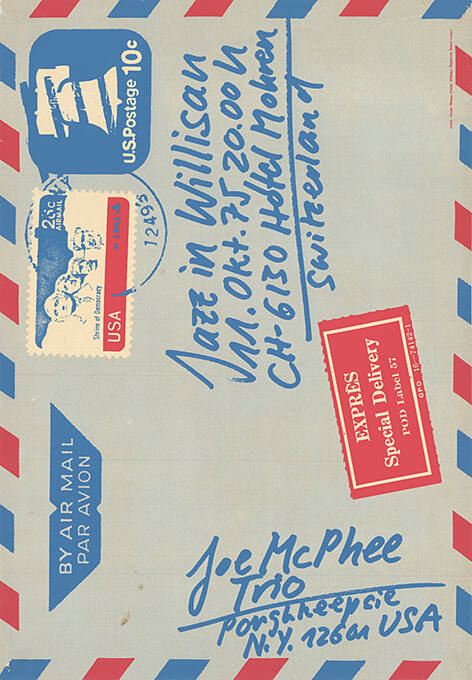 U.S. Postage 10c
26c
AIRMAIL
Shrine of Democracy
USA
12495
Jazz in Willisau
11. Okt. 75 20.00 h
CH-6130 Hotel Mohren
Switzerland
EXPRES
Special Delivery
POD Label 57
GPO 16-74142-1
BY AIR MAIL
PAR AVION
Joe McPhee
Trio
Poughkeepsie
N.Y. 12601 USA